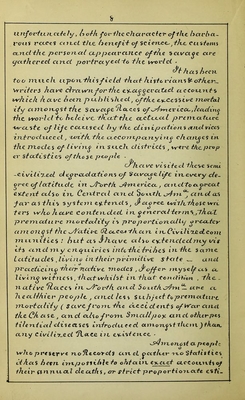 8
unfortunately, both for the character of the barba-
rous races and the benefit of science, the customs
and the personal appearance of the savage are
gathered and portrayed to the world.
It has been
too much upon this field that historians & other
writers have drawn for the exaggerated accounts
which have been published, of the excessive mortal
ity amongst the savage Races of America, leading
the world to beleive that the actual premature
waste of life caused by the dissipations and vices
introduced, with the accompanying changes in
the modes of living in such districts, were the prop
er statistics of those people.
I have visited these semi
-civilized degradations of savage life in every de-
gree of latitude in North America, and to a great
extent also in Central and South Ama. and as
far as this system extends, I agree with those wri
ters who have contended in general terms, that
premature mortality is proportionally greater
amongst the Native Races than in Civilized com
munities: but as I have also extended my vis
its and my enquiries into the tribes in the same
latitudes, living in their primitive state _ and
practicing their native modes, I offer myself as a
living witness, that whilst in that condition, the
native Races in North and South Ama. are a
healthier people, and less subject to premature
mortality (save from the accidents of War and
the Chase, and also from Smallpox and other pes
tilential diseases introduced amongst them) than
any civilized Race in existence.
Amongst a people
who preserve no Records and gather no Statistics
it has been impossible to obtain exact accounts of
their annual deaths, or strict proportionate esti-